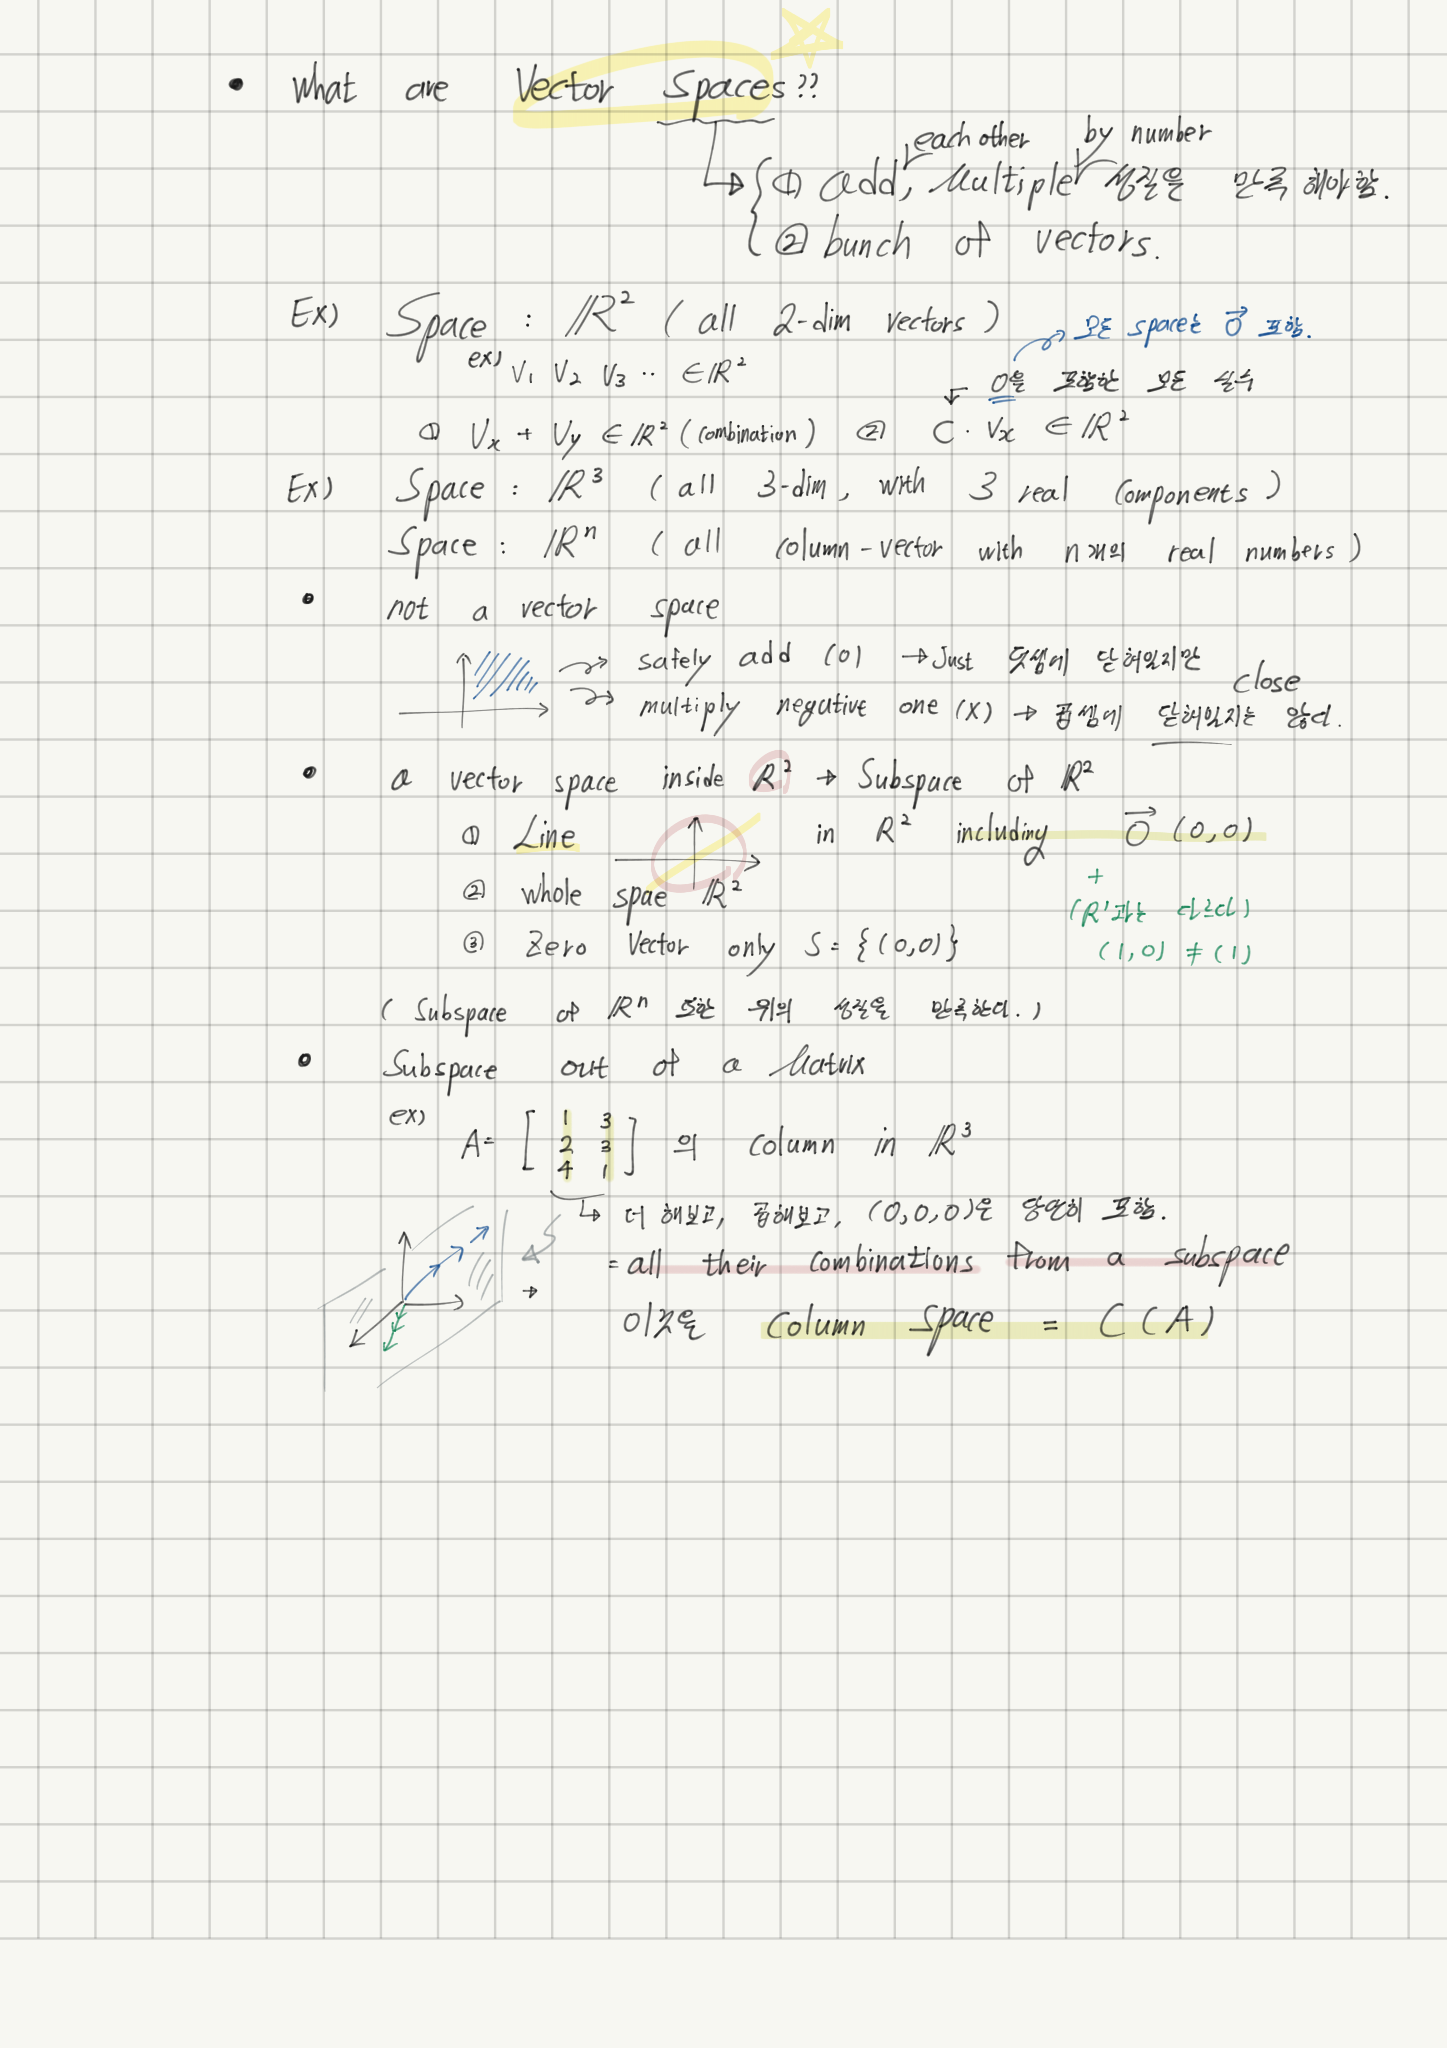 • What are Vector Spaces??
each other by number
① add, Multiple 성질을 만족 해야함.
② bunch of vectors.
Ex) Space : ℝ² ( all 2-dim vectors )
모든 space는 0⃗ 포함.
ex) V₁ V₂ V₃ ·· ∈ ℝ²
0을 포함한 모든 실수
① Vx + Vy ∈ ℝ² (combination) ② C · Vx ∈ ℝ²
Ex) Space : ℝ³ ( all 3-dim, with 3 real components )
Space : ℝⁿ ( all column-vector with n개의 real numbers )
• not a vector space
safely add (O) → Just 덧셈에 닫혀있지만
close
multiply negative one (X) →곱셈에 닫혀있지는 않다.
• a vector space inside ℝ² → Subspace of ℝ²
① Line in ℝ² including 0⃗ (0,0)
+
② whole spae ℝ²
(R¹과는 다르다)
③ Zero Vector only S = {(0,0)}
(1,0) ≠ (1)
( Subspace of ℝⁿ 또한 위의 성질을 만족한다. )
• Subspace out of a Matrix
ex)
A = [ 1 3
2 3
4 1 ] 의 column in ℝ³
↳ 더 해보고, 곱해보고, (0,0,0)은 당연히 포함.
→ = all their combinations from a subspace
이것을 Column Space = C (A)